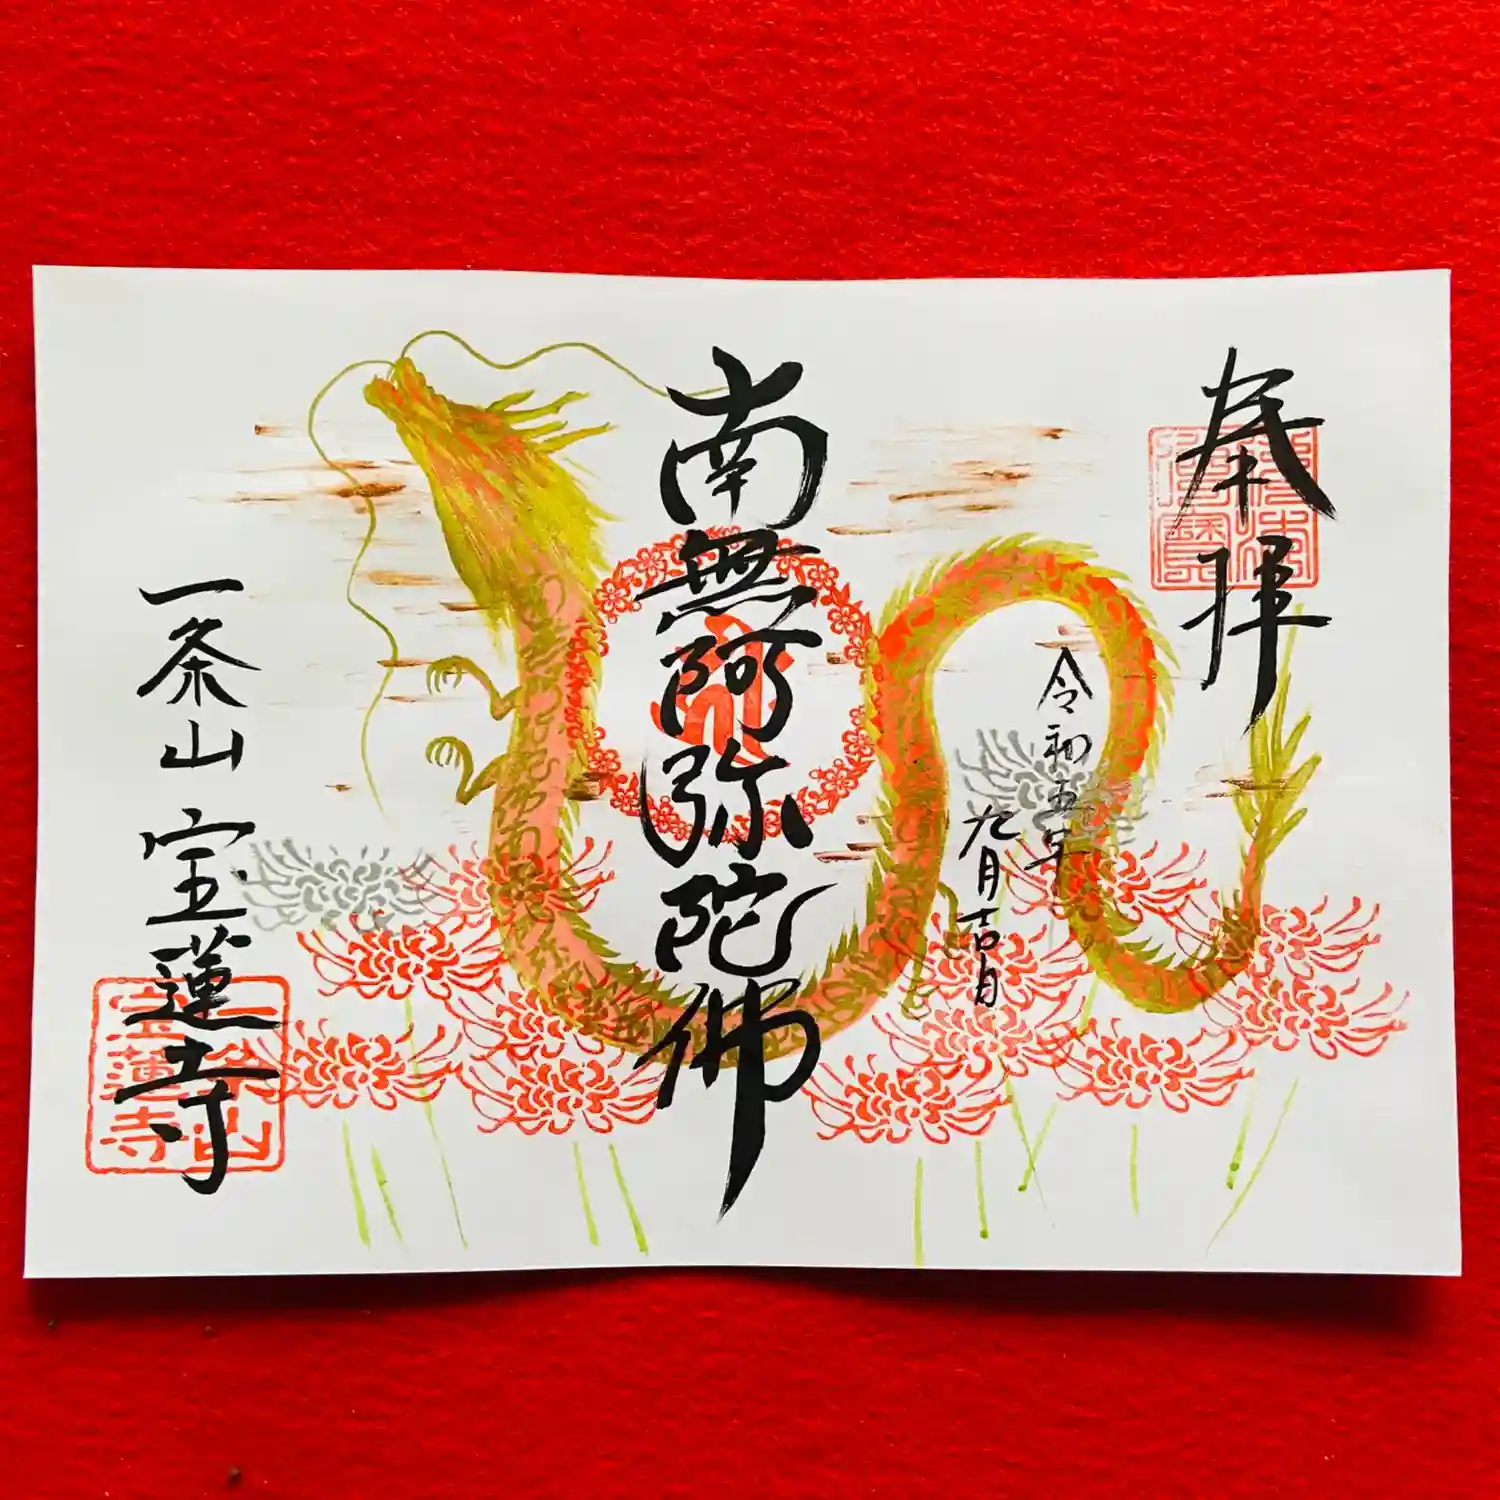 奉拝
令和五年
九月吉日
南無阿弥陀佛
一条山 宝蓮寺
一条山
宝蓮寺